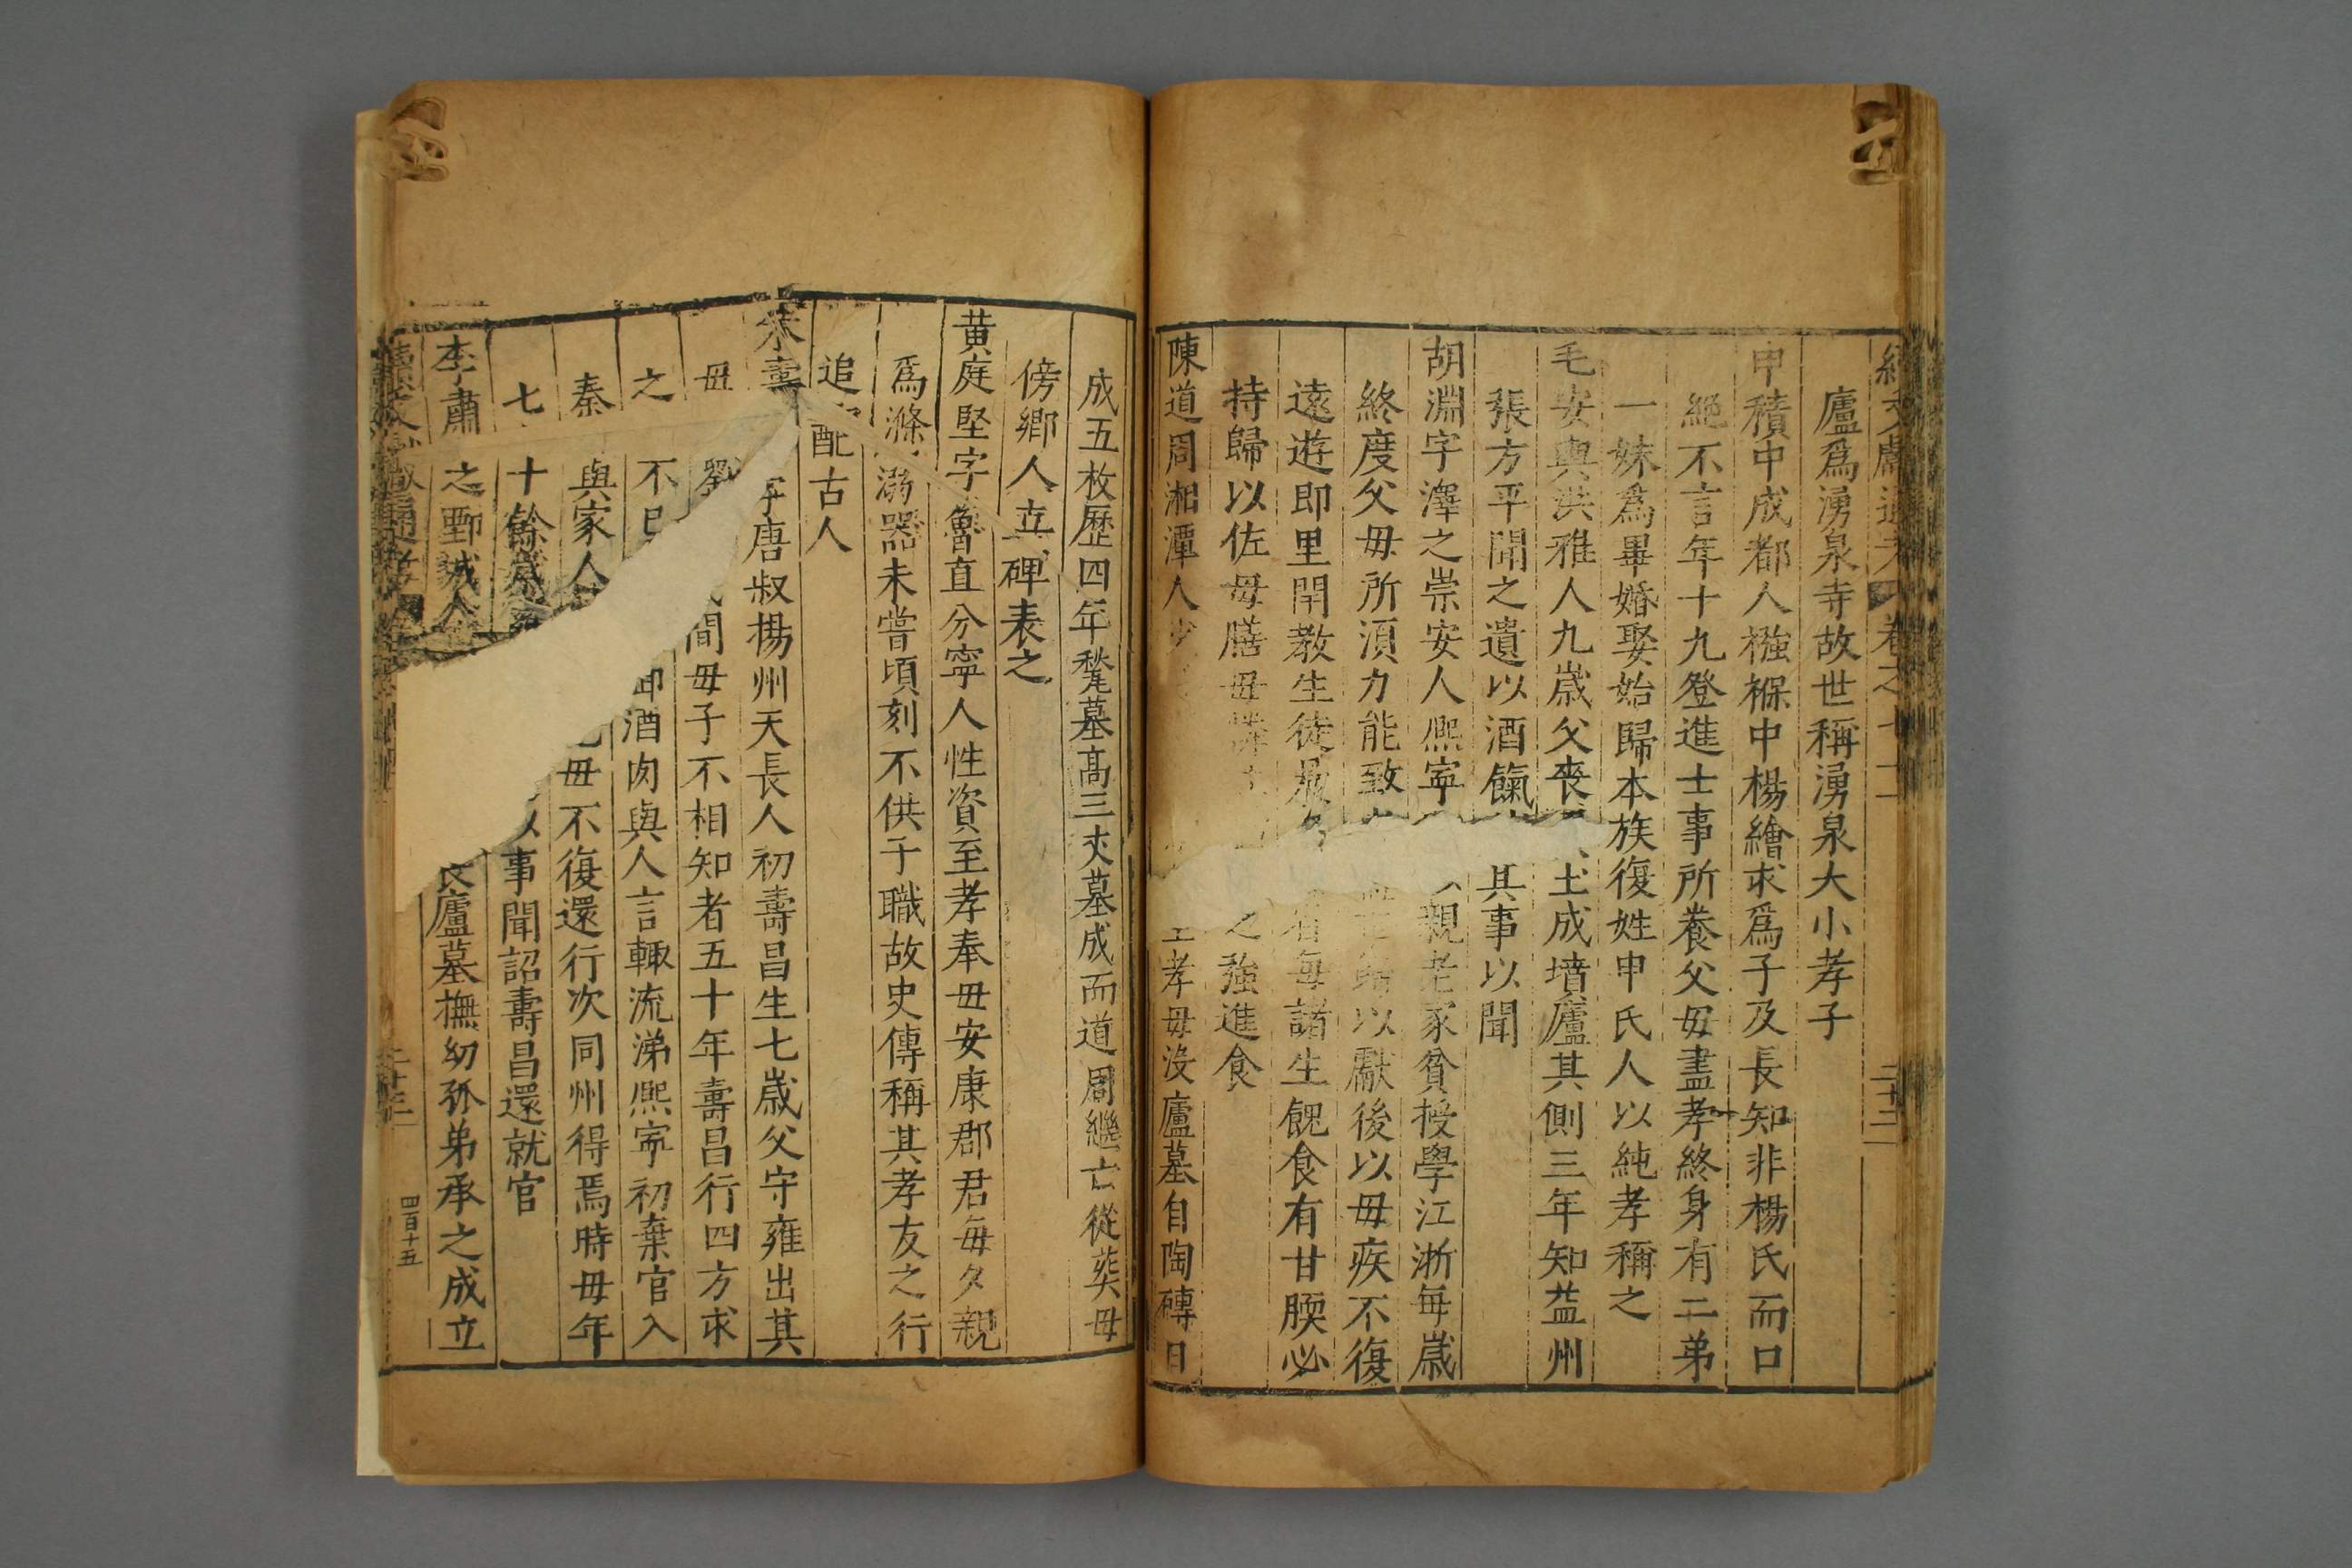 續文獻通考 卷之七十一 二十三
廬爲湧泉寺故世稱湧泉大小孝子
申積中成都人襁褓中楊繪求爲子及長知非楊氏而口
絕不言年十九登進士事所養父毋盡孝終身有二弟
一妹爲畢婚娶始歸本族復姓申氏人以純孝稱之
毛安輿洪雅人九歲父喪土成墳廬其側三年知益州
張方平聞之遺以酒餼其事以聞
胡淵字澤之崇安人熙寧親老家貧授學江浙每歲
終度父毋所須力能致歸以獻後以毋疾不復
遠遊即里閈教生徒最多者每諸生餽食有甘腝必
持歸以佐毋膳毋之強進食
陳道周湘潭人少孝毋沒廬墓自陶磚日
成五枚歷四年甃墓高三丈墓成而道周繼亡從葬毋
傍鄉人立碑表之
黃庭堅字魯直分寧人性資至孝奉毋安康郡君每夕親
爲滌溺器未嘗頃刻不供于職故史傳稱其孝友之行
追配古人
朱壽字唐叔揚州天長人初壽昌生七歲父守雍出其
毋劉間毋子不相知者五十年壽昌行四方求
之不已御酒肉與人言輒流涕熙寧初棄官入
秦與家人毋不復還行次同州得焉時毋年
七十餘歲以事聞詔壽昌還就官
李肅之鄄城人廬墓撫幼孤弟承之成立
二十三 四百十五